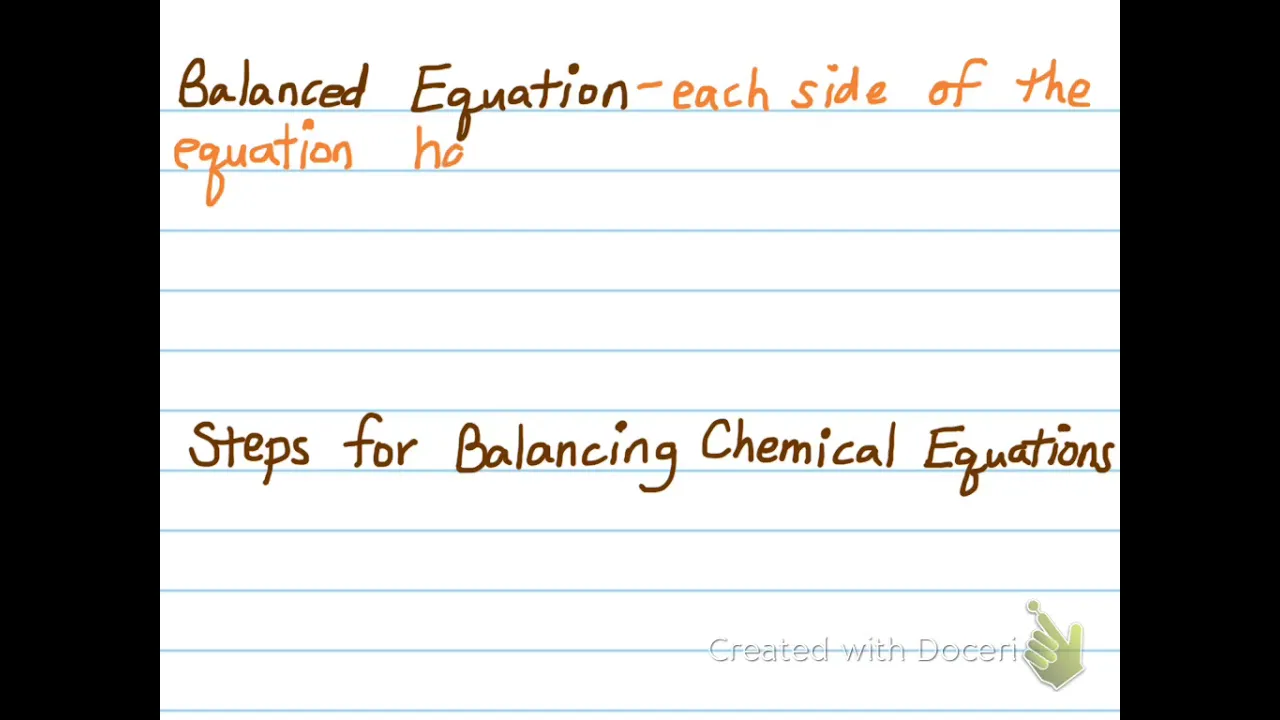 Balanced Equation - each side of the
equation ha
Steps for Balancing Chemical Equations
Created with Doceri